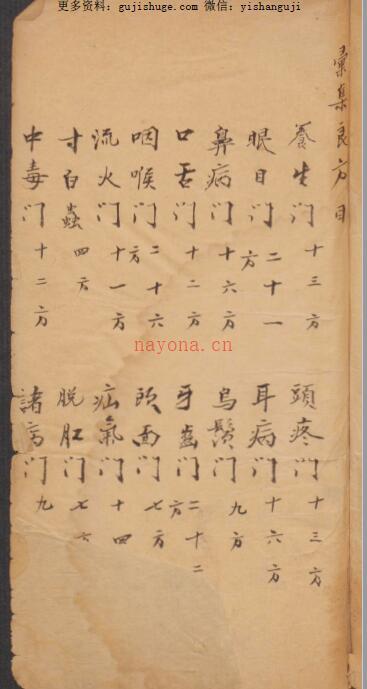 更多资料：gujishuge.com 微信：yishanguji
彙集良方目
養生门 十三方 頭疼门 十三方
眼目门 二十一方 耳病门 十六方
鼻病门 十六方 烏鬚门 九方
口舌门 十二方 牙齒门 二十二方
咽喉门 二十六方 頭面门 七方
流火门 十一方 疝氣门 十四
寸白蟲 四方 脱肛门 七方
中毒门 十二方 諸门 九
nayona.cn